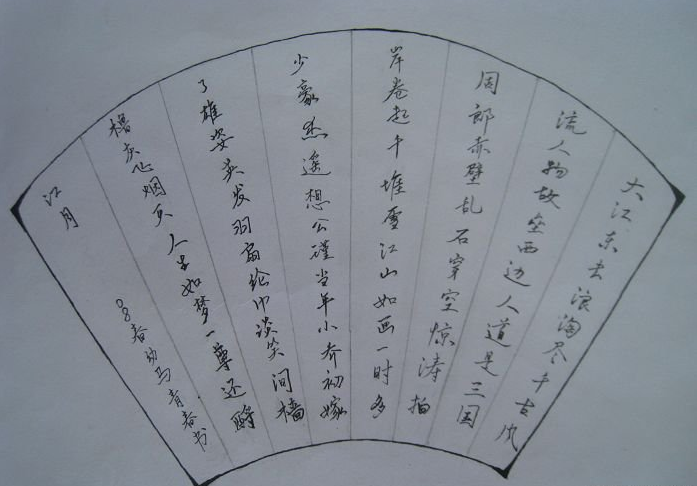 大江东去浪淘尽千古风
流人物故垒西边人道是三国
周郎赤壁乱石穿空惊涛拍
岸卷起千堆雪江山如画一时多
少豪杰遥想公瑾当年小乔初嫁
了雄姿英发羽扇纶巾谈笑间樯
橹灰飞烟灭人生如梦一尊还酹
江月
08春幼马青春书